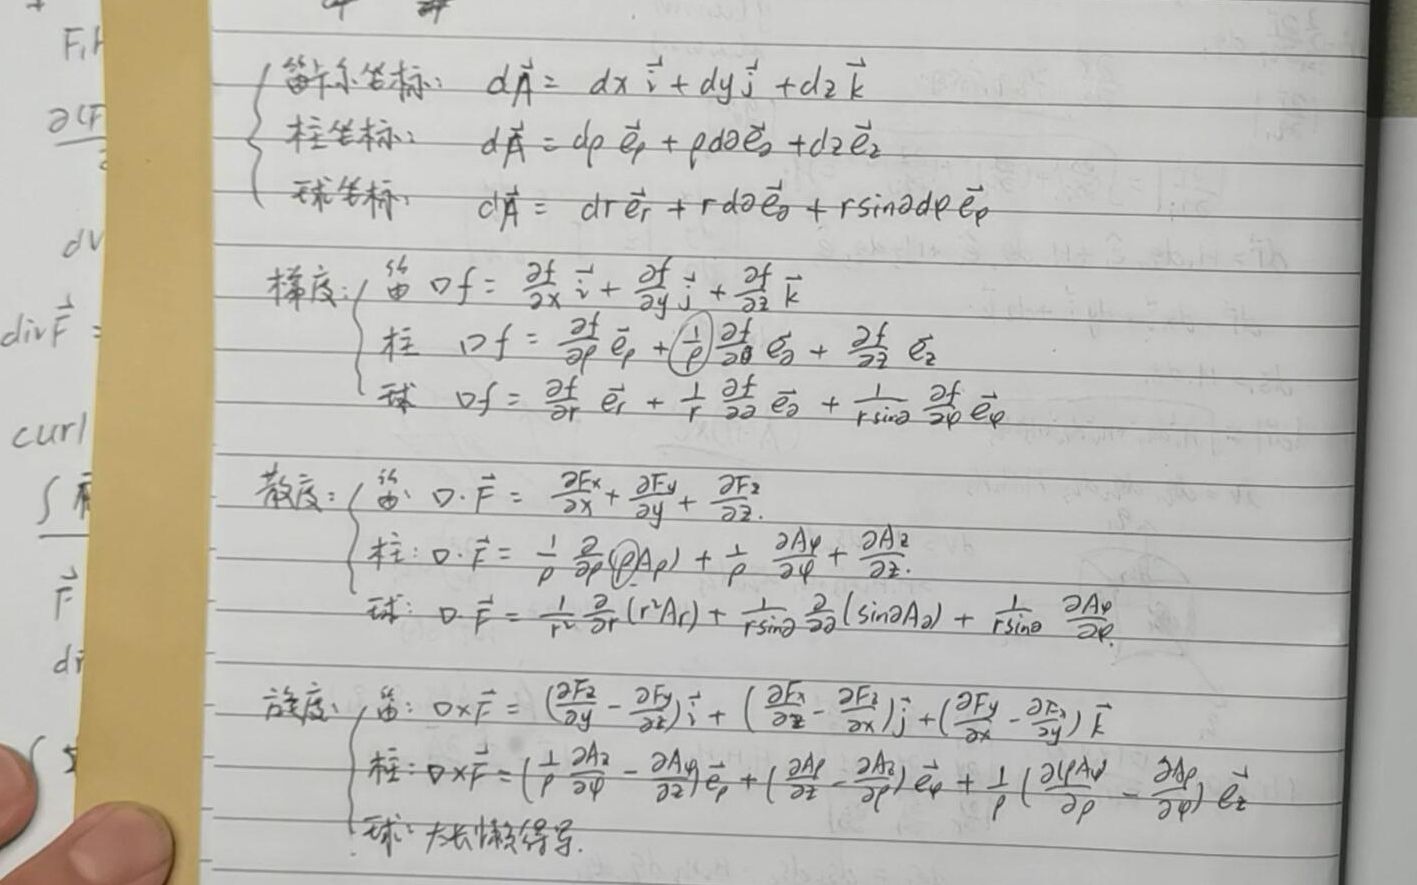 F,H
∂(F
dV
div F⃗ =
curl
∫
F⃗
di
∫
笛卡尔坐标: dA⃗ = dx i⃗ + dy j⃗ + dz k⃗
柱坐标: dA⃗ = dρ e⃗ρ + ρdθ e⃗θ + dz e⃗z
球坐标: dA⃗ = dr e⃗r + rdθ e⃗θ + rsinθdφ e⃗φ
梯度: 笛 ∇f = ∂f/∂x i⃗ + ∂f/∂y j⃗ + ∂f/∂z k⃗
柱 ∇f = ∂f/∂ρ e⃗ρ + 1/ρ ∂f/∂θ e⃗θ + ∂f/∂z e⃗z
球 ∇f = ∂f/∂r e⃗r + 1/r ∂f/∂θ e⃗θ + 1/(rsinθ) ∂f/∂φ e⃗φ
散度: 笛: ∇·F⃗ = ∂Fx/∂x + ∂Fy/∂y + ∂Fz/∂z.
柱: ∇·F⃗ = 1/ρ ∂/∂ρ(ρAρ) + 1/ρ ∂Aφ/∂φ + ∂Az/∂z.
球: ∇·F⃗ = 1/r² ∂/∂r(r²Ar) + 1/(rsinθ) ∂/∂θ(sinθAθ) + 1/(rsinθ) ∂Aφ/∂φ.
旋度: 笛: ∇×F⃗ = (∂Fz/∂y - ∂Fy/∂z) i⃗ + (∂Fx/∂z - ∂Fz/∂x) j⃗ + (∂Fy/∂x - ∂Fx/∂y) k⃗
柱: ∇×F⃗ = (1/ρ ∂Az/∂φ - ∂Aφ/∂z) e⃗ρ + (∂Aρ/∂z - ∂Az/∂ρ) e⃗φ + 1/ρ (∂(ρAφ)/∂ρ - ∂Aρ/∂φ) e⃗z
球: 太长懒得写.